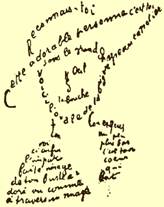 Reconnais-toi
Cette adorable personne c'est toi
sous le grand chapeau canotier
œil
la bouche
Voici l'ovale de ta figure
ci enfin
l'impar
faite image
de ton buste a
doré vu comme
à travers un nuage
un peu
plus bas
c'est ton
cœur
qui
bat